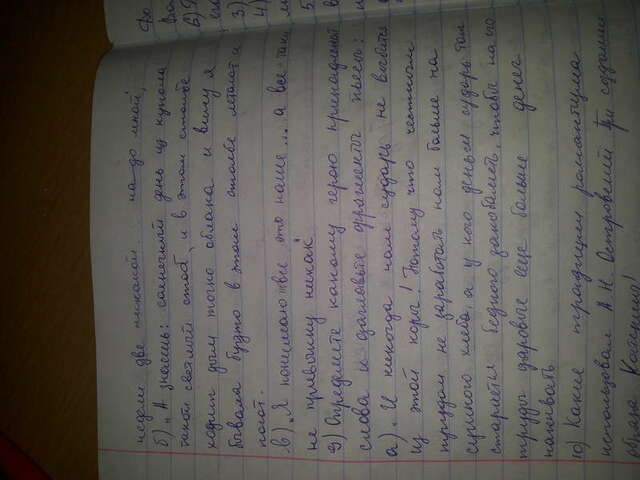 недели две никакой... на-до мной,
б) „А знаешь: солнечный день из купола
такой светлый столб, и в этом столбе
ходит дым точно облака и вижу я
бывало будто в этом столбе летают и
поют.
в) „Я понимаю что это наше... а все таки
не привыкну никак
9) Определите какому герою принадлежат
слова и озаглавьте фрагменты пьесы:
а) „И никогда нам сударь не выбиться
из этой коры! Потому что честным
трудом не заработать нам больше на
сущного хлеба а у кого деньги сударь тот
старается бедного закабалить, чтобы на его
труды даровые еще больше денег
наживать
10) Какие традиции романтизма
использовал А.Н. Островский при создании
образа Катерины!
3)
4)
5.